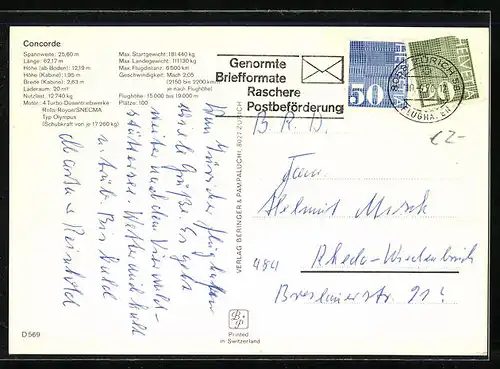 Concorde
Spannweite: 25,60 m
Länge: 62,17 m
Höhe (ab Boden): 12,19 m
Höhe (Kabine): 1,95 m
Breite (Kabine): 2,63 m
Laderaum: 20 m³
Nutzlast: 12 740 kg
Motor: 4 Turbo-Düsentriebwerke
Rolls-Royce/SNECMA
Typ Olympus
(Schubkraft von je 17 260 kg)
Max. Startgewicht: 181 440 kg
Max. Landegewicht: 111 130 kg
Max. Flugdistanz: 6 500 km
Geschwindigkeit: Mach 2,05
(2150 bis 2200 km/
je nach Flughöhe)
Flughöhe: 15 000 bis 19 000 m
Plätze: 100
Genormte
Briefformate
Raschere
Postbeförderung
50
HELVETIA
FLUGHAFEN
Vom Züricher Flughafen
viele Grüße. Es geht
weiter nach dem Vierwald-
stättersee. Wetter mit
u. trüb. Bis bald
Reinhold
VERLAG BERINGER & PAMPALUCHI, 8027 ZÜRICH
B.R.D.
Helmut
484 Rheda-Wiedenbrück
Breslauerstr.
€2-
Printed
in Switzerland
D 569